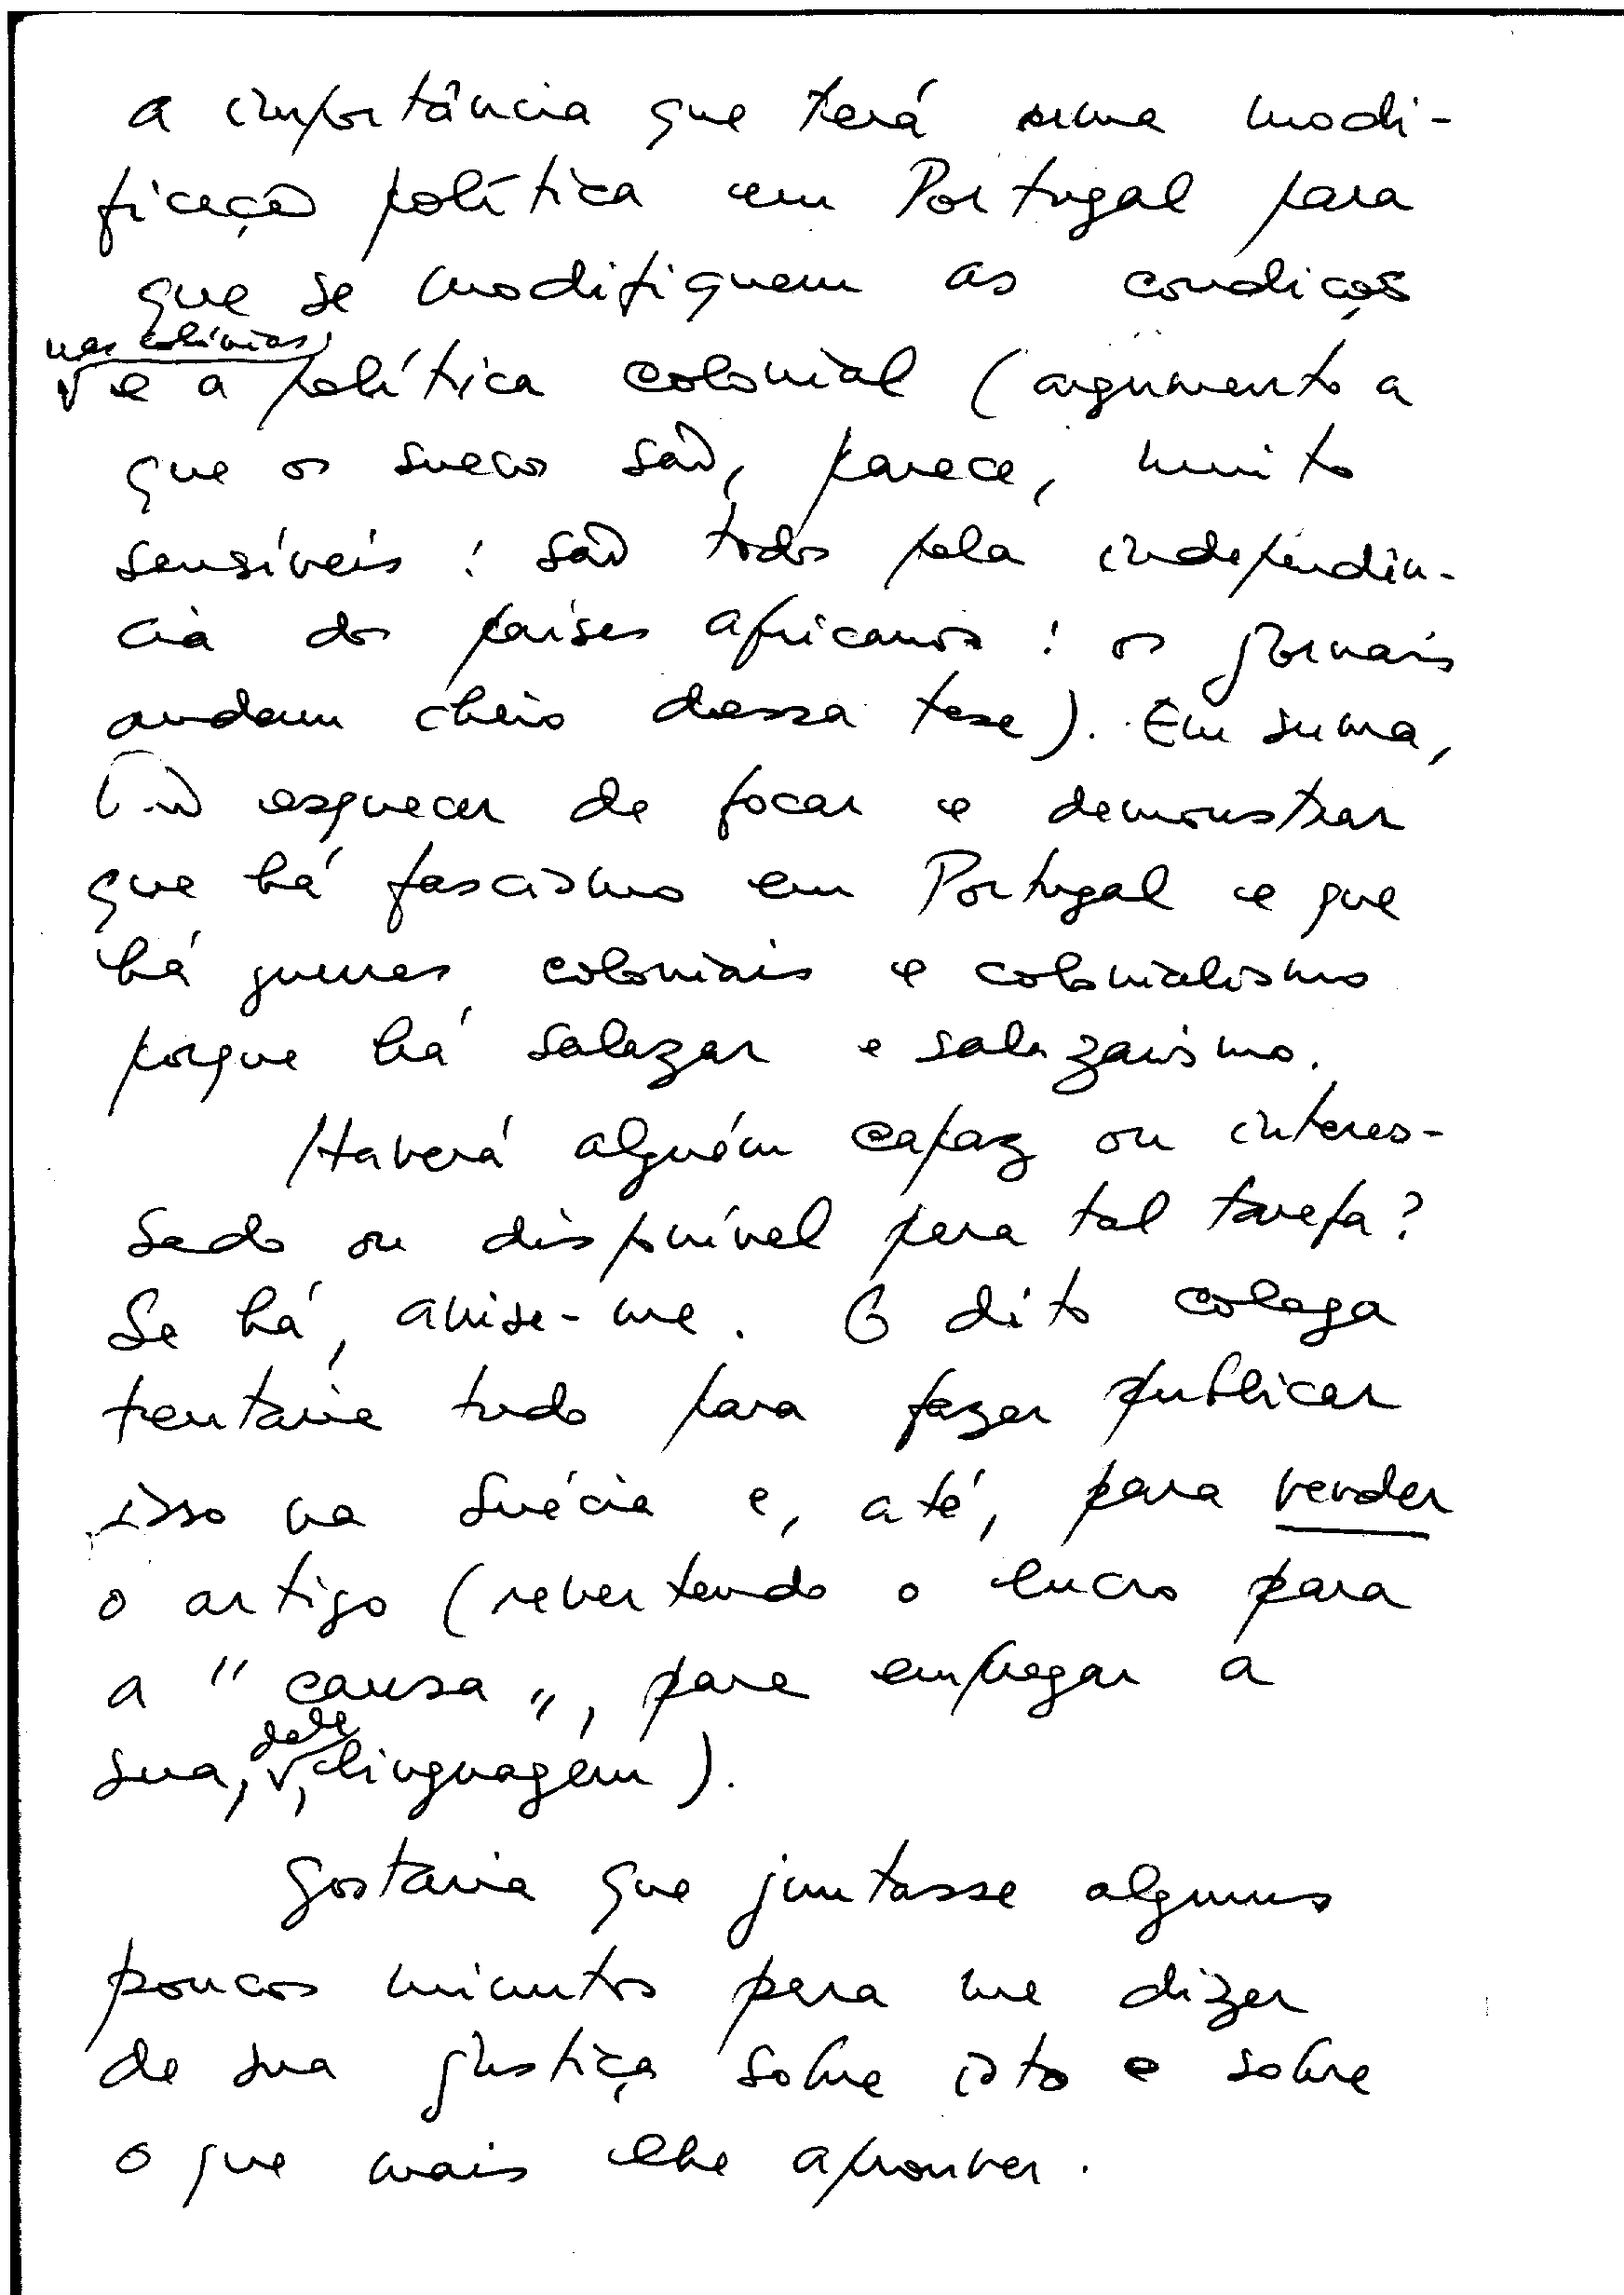 a importância que terá uma modi-
ficação política em Portugal para
que se modifiquem as condições
nas colónias
e a política colonial (argumento a
que os suecos são, parece, muito
sensíveis: são todos pela independên-
cia dos países africanos: os jornais
andam cheios dessa tese). Em suma,
não esquecer de focar e demonstrar
que há fascismo em Portugal e que
há guerras coloniais e colonialismo
porque há Salazar e salazarismo.
Haverá alguém capaz ou interes-
sado ou disponível para tal tarefa?
Se há, avise-me. O dito colega
tentaria tudo para fazer publicar
isso na Suécia e, até, para vender
o artigo (revertendo o lucro para
a "causa", para empregar a
dele
sua, , linguagem).
Gostaria que juntasse alguns
poucos minutos para me dizer
de sua justiça sobre isto e sobre
o que mais lhe aprouver.